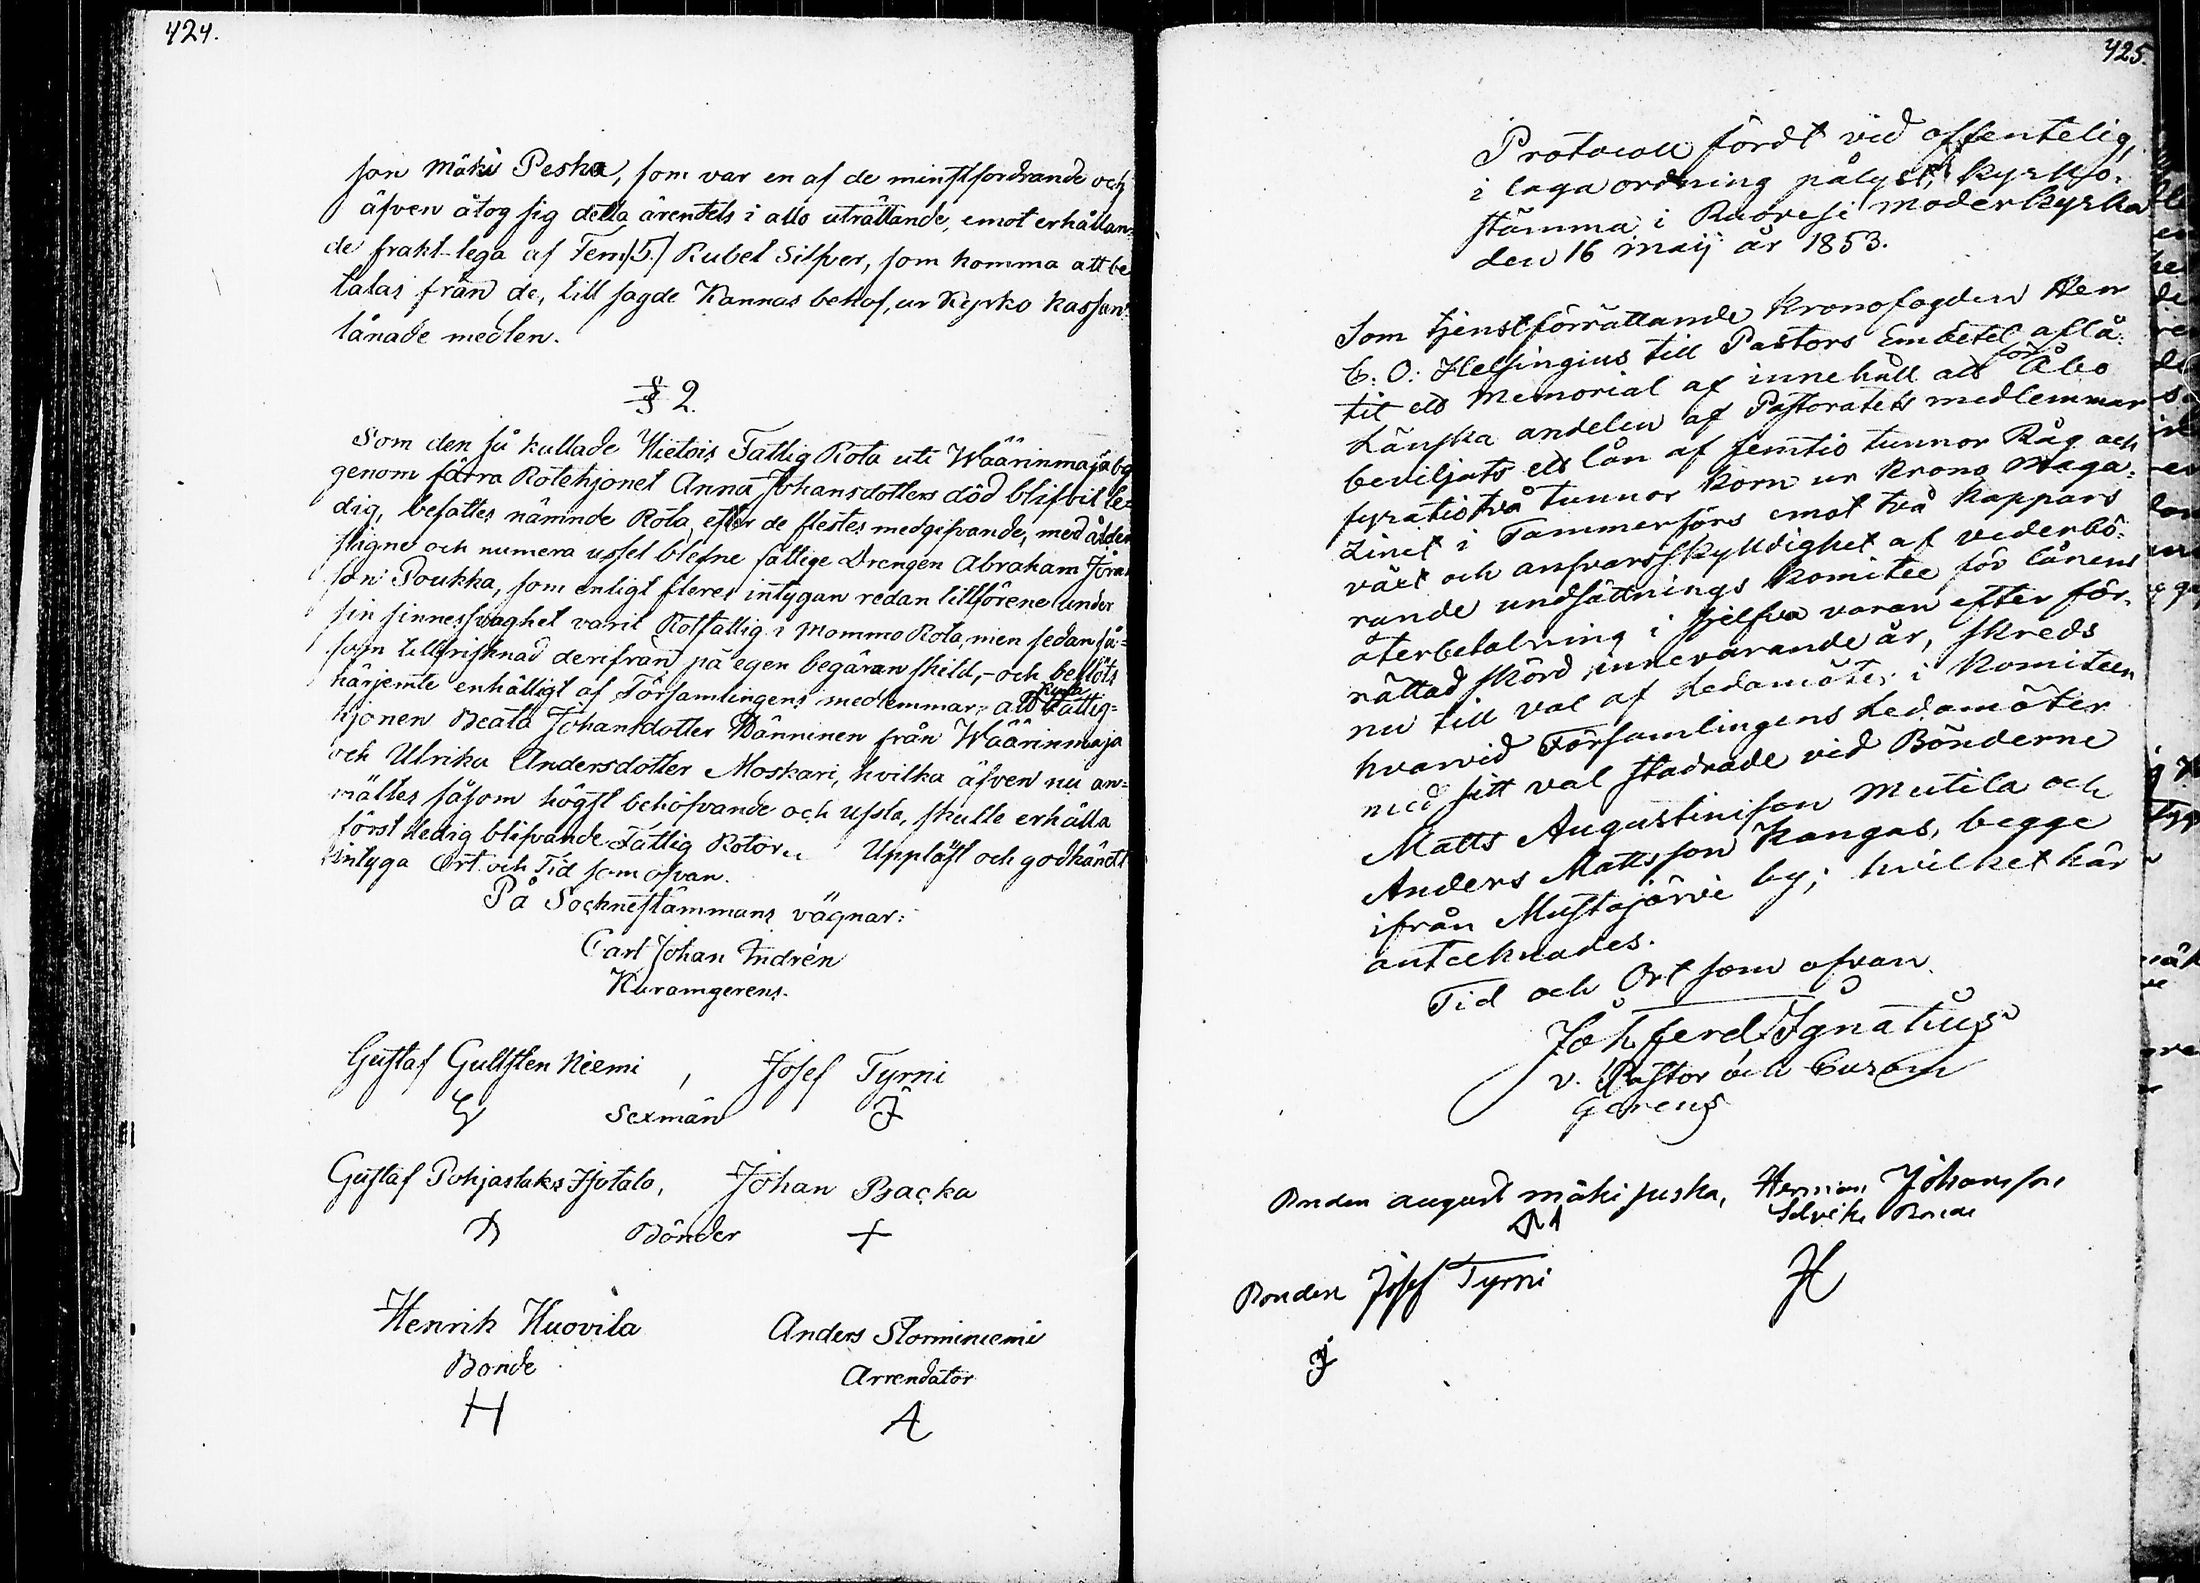 424.
son Mäki Peska, som var en af de minstfordrande och
äfven åtog sig detta ärendets i allo uträttande, emot erhållan-
de frakt-lega af Fem /5/ Rubel Silfver, som komma att be
talas från de, till sagde Kannas behof, ur Kyrko Kassan
lånade medlen.
§ 2.
Som den så kallade Hietois Fattig Rota uti Wäärinmaja by
genom förra Rotehjonet Anna Johansdotters död blifvit le-
dig, besattes nämnde Rota, efter de flestes medgifvande, med ålder
stigne och numera ussel blefne fattige Drengen Abraham Jöran
son Poukka, som enligt fleres intygan redan tillförene under
sin sinnessvaghet varit Rotfattig i Mommo Rota, men sedan så-
som tillfrisknad derifrån på egen begäran skild, - och beslöts
härjemte enhälligt af Församlingens medlemmar, att Fattig-
hjonen Beata Johansdotter Wänninen från Wäärinmaja
och Ulrika Andersdotter Moskari, hvilka äfven nu an-
mältes såsom högst behöfvande och ussla, skulle erhålla
först ledig blifvande Fattig Rotor. Uppläst och godkändt
intyga Ort och Tid som ofvan.
På Sochnestämmans vägnar:
Carl Johan Indrén
Kuramgerens.
Gustaf Gullsten Niemi, Josef Tyrni
Sexmän J
Gustaf Pohjaslaks Isotalo, Johan Backa
Bönder +
Henrik Huovila Anders Storminiemi
Bonde Arrendator
H A
425.
Protocoll fördt vid offentelig,
i laga ordning pålyst, kyrkjo-
stämma i Ruovesi moderkyrka
den 16 Maij år 1853.
Som tjenstförrättande Kronofogden Herr
C. O. Helsingius till Pastors Embetet aflå-
tit ett Memorial af innehåll att för Åbo
Länska andelen af Pastoratets medlemmar
beviljats ett lån af femtio tunnor Råg och
fyratiotvå tunnor Korn ur Krono Maga-
zinet i Tammerfors emot två kappars
växt och ansvarsskyldighet af vederbö-
rande undsättnings Komitee för lånens
återbetalning i sjelfva varan efter för-
rättad skörd innevarande år, skreds
nu till val af Ledamöter i Komiteen
hvarvid Församlingens Ledamöter
med sitt val stadnade vid Bönderne
Matts Augustinsson Mutila och
Anders Mattsson Kangas, begge
ifrån Mustajärvi by; hvilket här
antecknades.
Tid och Ort som ofvan.
Joh Ferd Ignatius
v. Pastor och Curam
Gerens
Bonden august mäki puska, Herman Johansson
Selvike Bonde
Bonden Josef Tyrni H
J